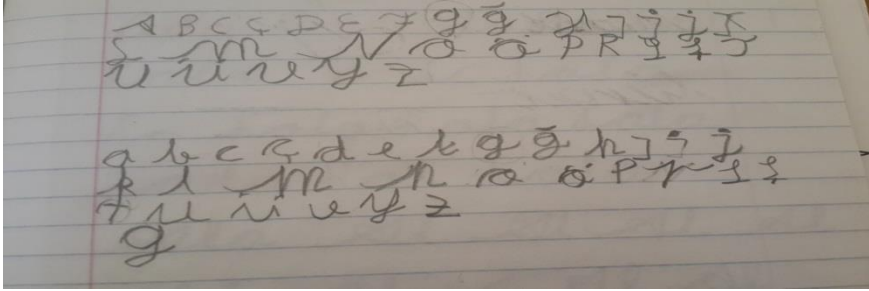 A B C Ç D E F g ğ H I i j K
L M N O Ö P R S Ş T
U Ü V Y Z
a b c ç d e f g ğ h ı i j
k l m n o ö P r s ş
t u ü v y z
g